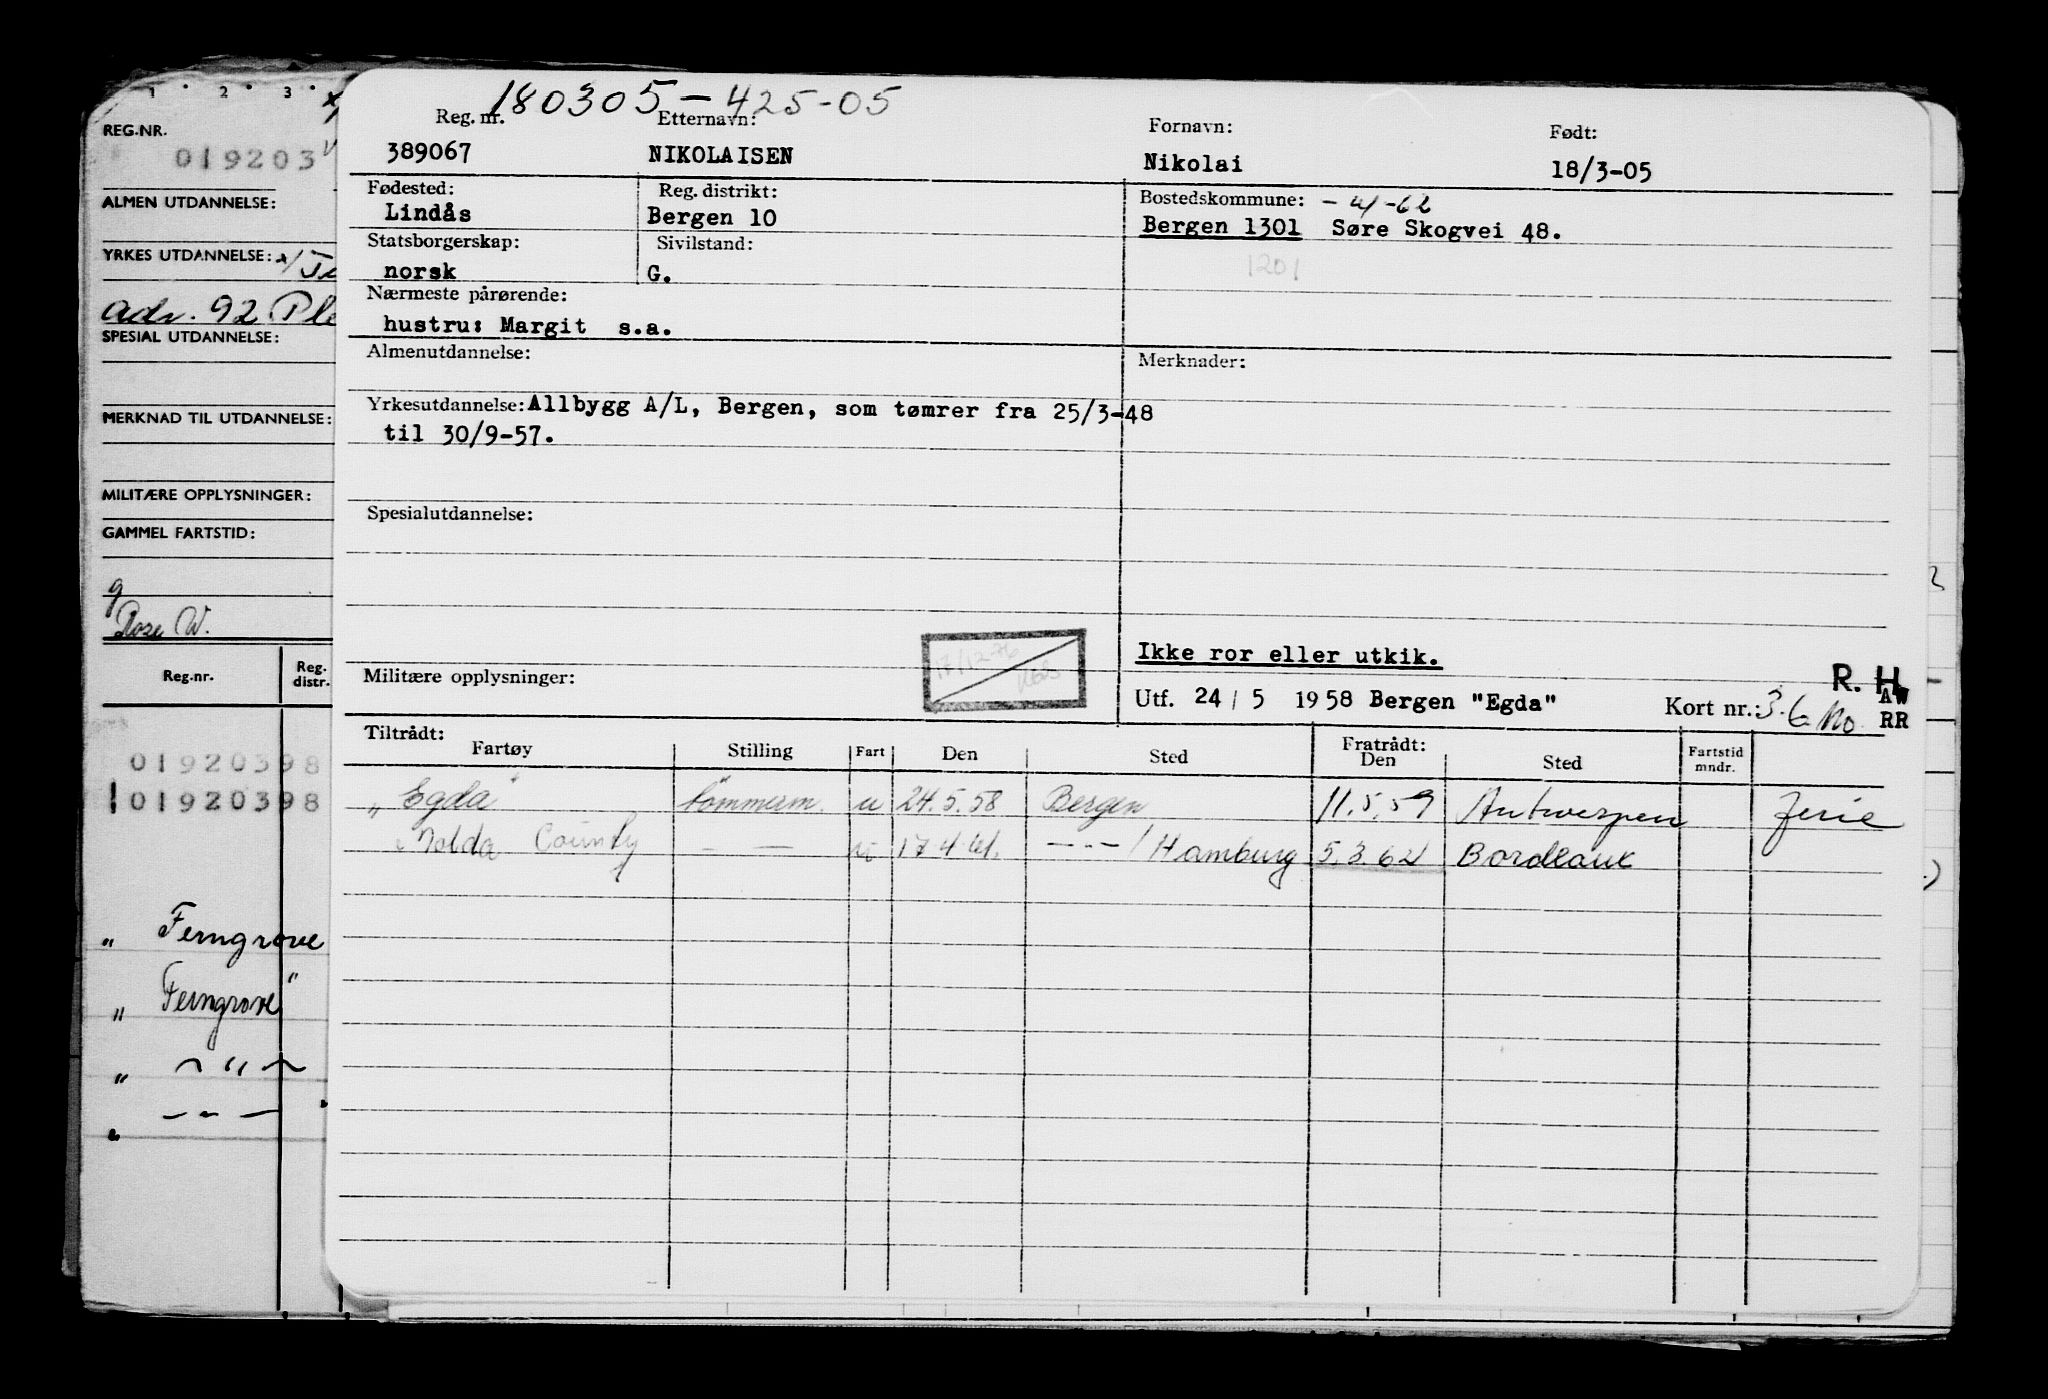 1 · 2 · 3 ·
REG.NR.
019203
ALMEN UTDANNELSE:
YRKES UTDANNELSE:
Adr. 92
SPESIAL UTDANNELSE:
MERKNAD TIL UTDANNELSE:
MILITÆRE OPPLYSNINGER:
GAMMEL FARTSTID:
Rose W.
Reg.nr. Reg. distr.
01920398
01920398
" Ferngrove
" Ferngrove"
" ~ " ~
" — " —
180305-425-05
Reg. nr. Etternavn: Fornavn: Født:
389067 NIKOLAISEN Nikolai 18/3-05
Fødested: Reg. distrikt: Bostedskommune: -4/-62
Lindås Bergen 10 Bergen 1301 Søre Skogvei 48.
Statsborgerskap: Sivilstand: 1201
norsk G.
Nærmeste pårørende:
hustru: Margit s.a.
Almenutdannelse: Merknader:
Yrkesutdannelse: Allbygg A/L, Bergen, som tømrer fra 25/3-48
til 30/9-57.
Spesialutdannelse:
17/12-76
Ikke ror eller utkik.
Militære opplysninger:
Utf. 24 / 5 1958 Bergen "Egda" Kort nr.: 3. R. H. AW RR
Tiltrådt: Fratrådt:
Fartøy Stilling Fart Den Sted Den Sted Fartstid mndr.
"Egda" tømmerm. u 24.5.58 Bergen 11.5.59 Antwerpen ferie
Molda County — — u 17 4 61. — " — / Hamburg 5.3.62 Bordeaux